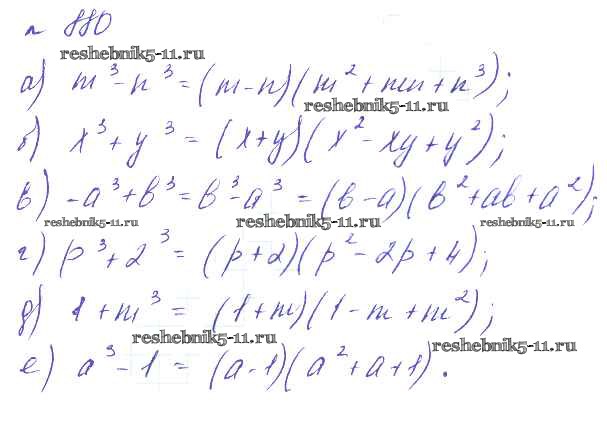 № 880
reshebnik5-11.ru
а) m³-n³=(m-n)(m²+mn+n³);
reshebnik5-11.ru
б) x³+y³=(x+y)(x²-xy+y²);
в) -a³+b³=b³-a³=(b-a)(b²+ab+a²);
reshebnik5-11.ru reshebnik5-11.ru reshebnik5-11.ru
г) p³+2³=(p+2)(p²-2p+4);
д) 1+m³=(1+m)(1-m+m²);
reshebnik5-11.ru reshebnik5-11.ru
е) a³-1=(a-1)(a²+a+1).